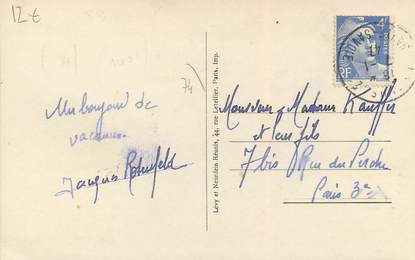 12€
74)
Un bonjour de
vacances.
Jacques
Lévy et Neurdein Réunis, 44, rue Letellier, Paris. Imp.
POSTES
RF
SAVOIE
Monsieur, Madame Kauffer
et leur fils
7 bis Rue du Perche
Paris 3e